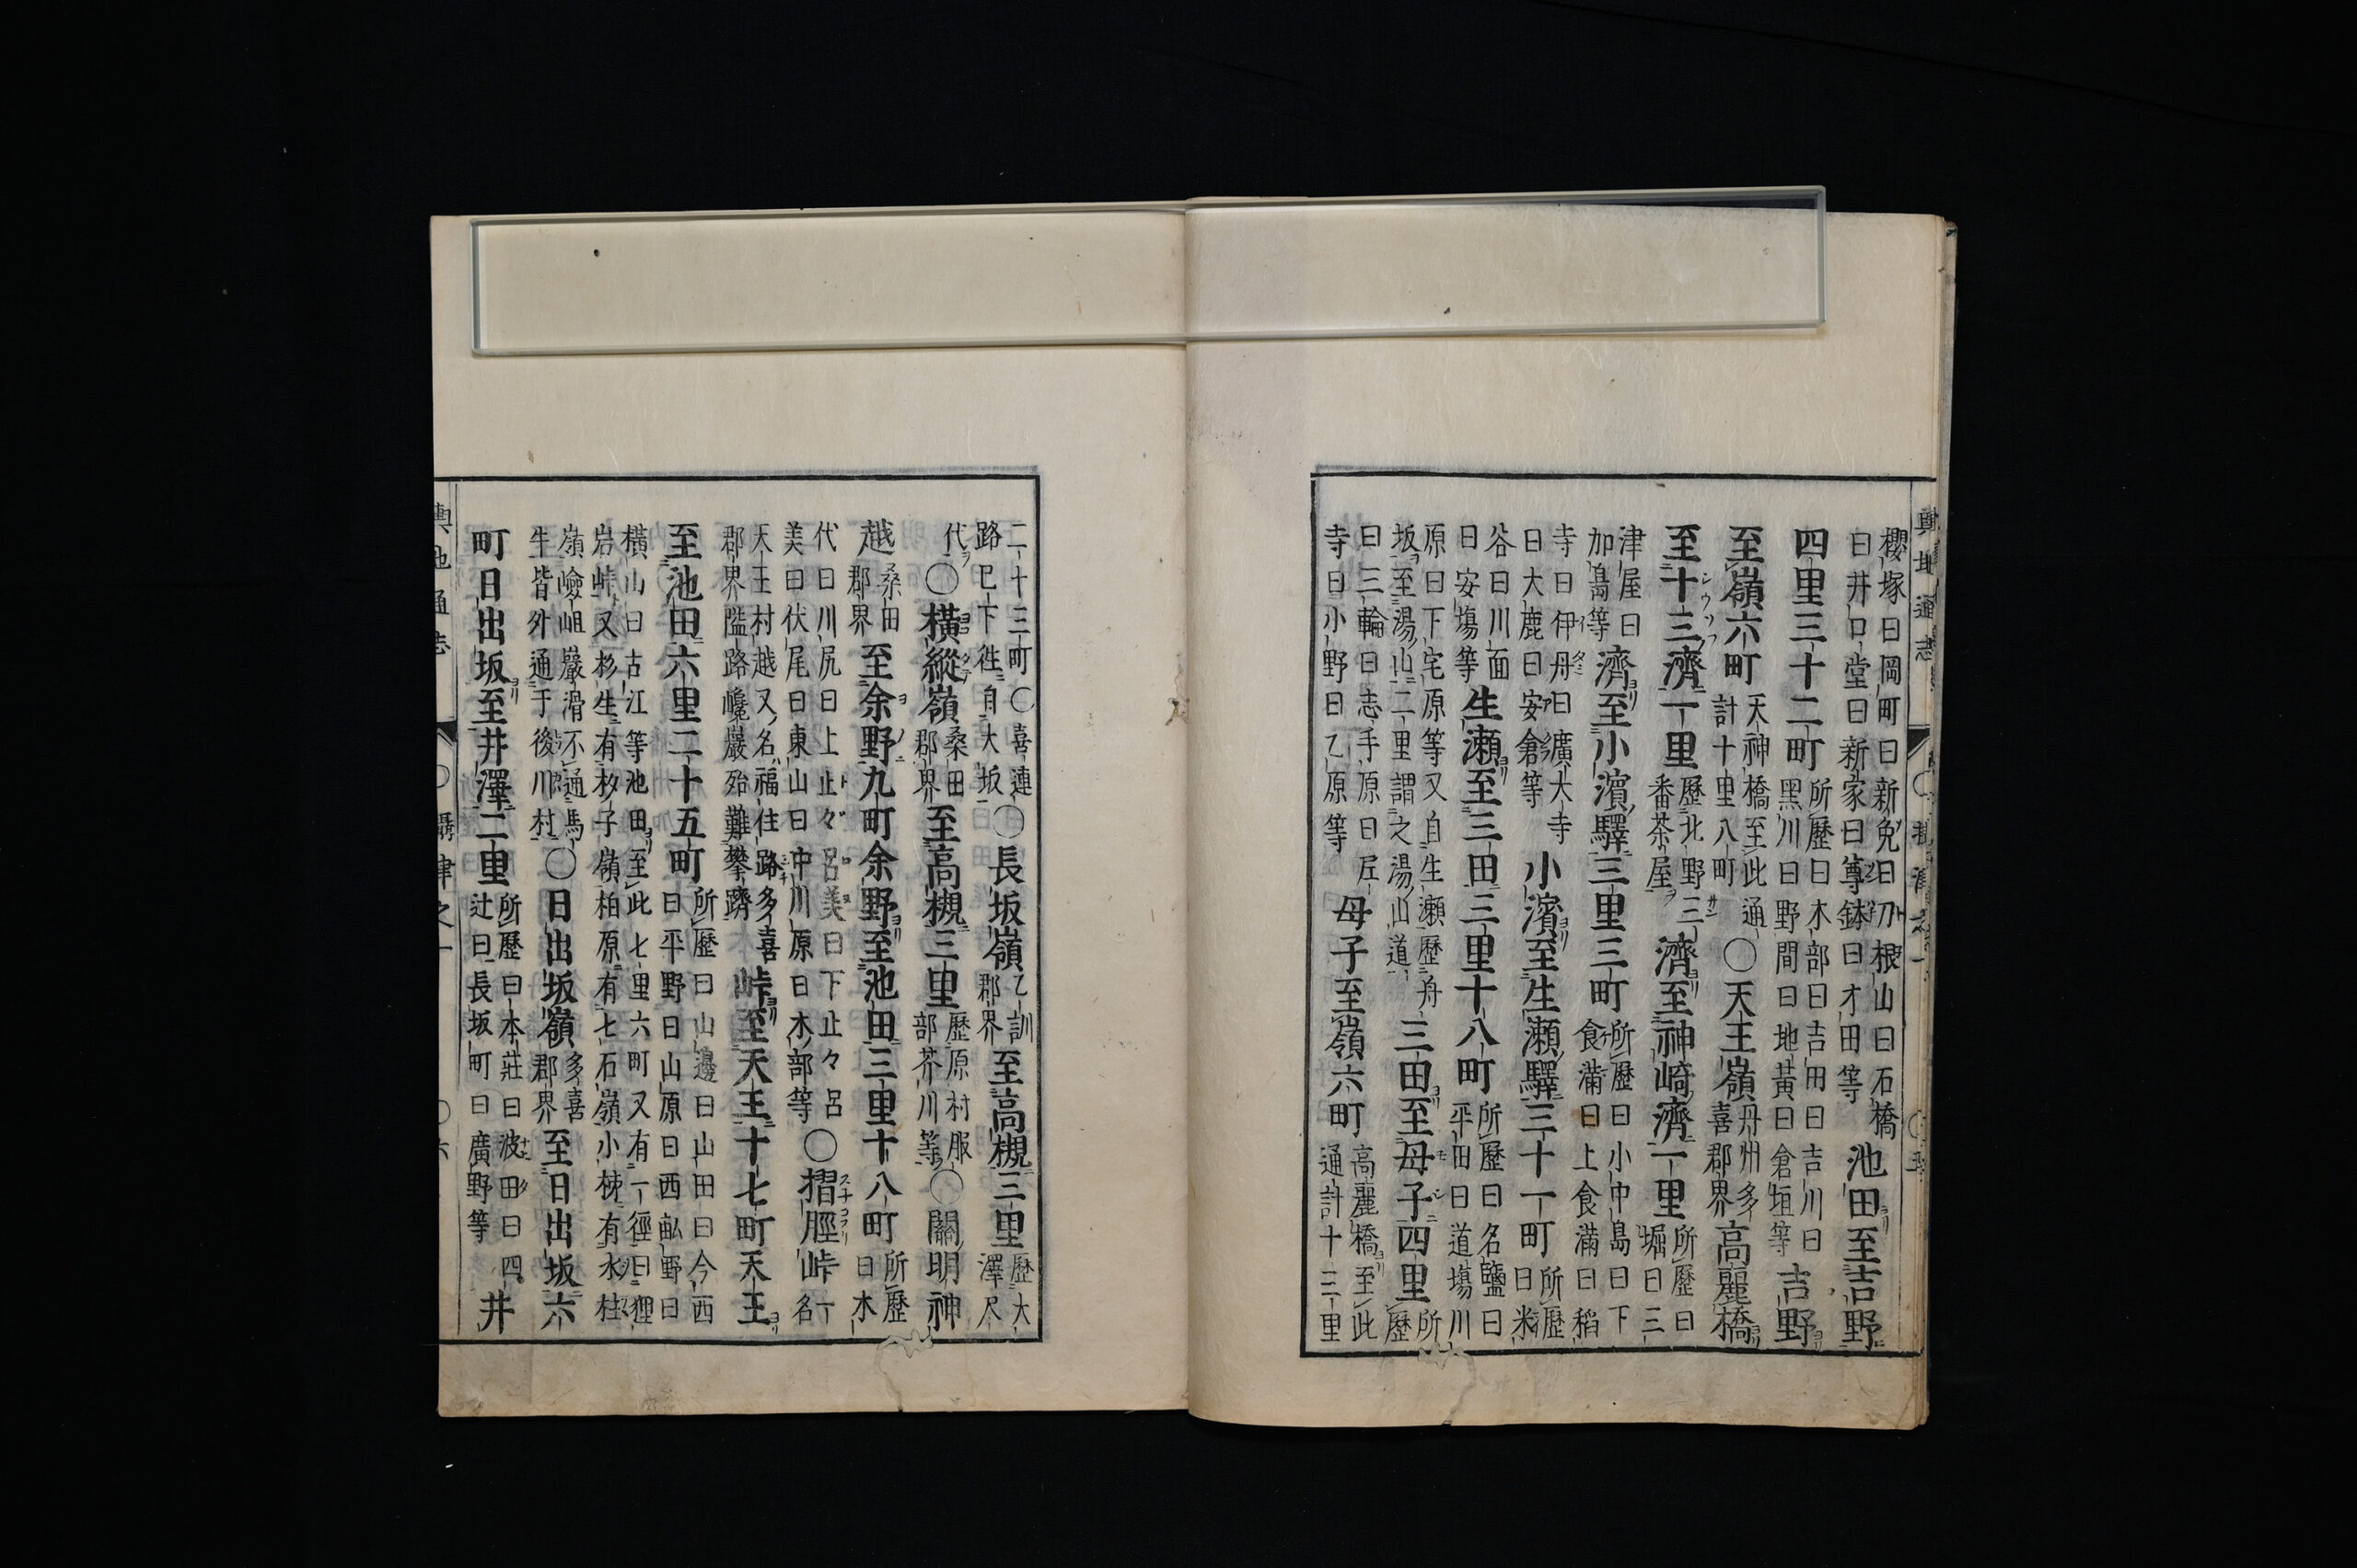 櫻塚曰岡町曰新免曰刀根山曰石橋
曰井口堂曰新家曰尊鉢曰才田等
池田至吉野
四里三十二町
所歷曰木部曰吉田曰吉川曰
黑川曰野間曰地黃曰倉垣等
吉野
至嶺六町
天神橋至此通
計十里八町
〇天王嶺
丹州多
喜郡界
高麗橋
至十三濟一里
歷北野三
番茶屋
濟至神崎濟一里
所歷曰
堀曰三
津屋曰
加島等
濟至小濱驛三里三町
所歷曰小中島曰下
食滿曰上食滿曰稻
寺曰伊丹曰廣大寺
曰大鹿曰安倉等
小濱至生瀬驛三十一町
所歷
曰米
谷曰川面
曰安塲等
生瀬至三田三里十八町
所歷曰名鹽曰
平田曰道塲川
原曰下宅原等又自生瀬歷舟
坂至湯山二里謂之湯山道
三田至母子四里
所
歷
曰三輪曰志手原曰尼
寺曰小野曰乙原等
母子至嶺六町
高麗橋至此
通計十三里
二十三町〇喜連
路巳下徃自大坂
〇長坂嶺
乙訓
郡界
至高槻三里
歷大
澤尺
代
〇横縱嶺
桑田
郡界
至高槻三里
歷原村服
部芥川等
〇關明神
越
桑田
郡界
至余野九町余野至池田三里十八町
所歷
曰木
代曰川尻曰上止々呂美曰下止々呂
美曰伏尾曰東山曰中川原曰木部等
〇摺脛峠
一
名
天王村越又名福住路多喜
郡界隘路巉巖殆難攀躋
峠至天王十七町天王
至池田六里二十五町
所歷曰山邊曰山田曰今西
曰平野曰山原曰西畝野曰
橫山曰古江等池田至此七里六町又有一徑曰狸
岩峠又杉生有杉子嶺柏原有七石嶺小梂有水桂
嶺嶮岨巖滑不通馬
牛皆外通于後川村
〇日出坂嶺
多喜
郡界
至日出坂六
町日出坂至井澤二里
所歷曰本莊曰波田曰四
辻曰長坂町曰廣野等
井